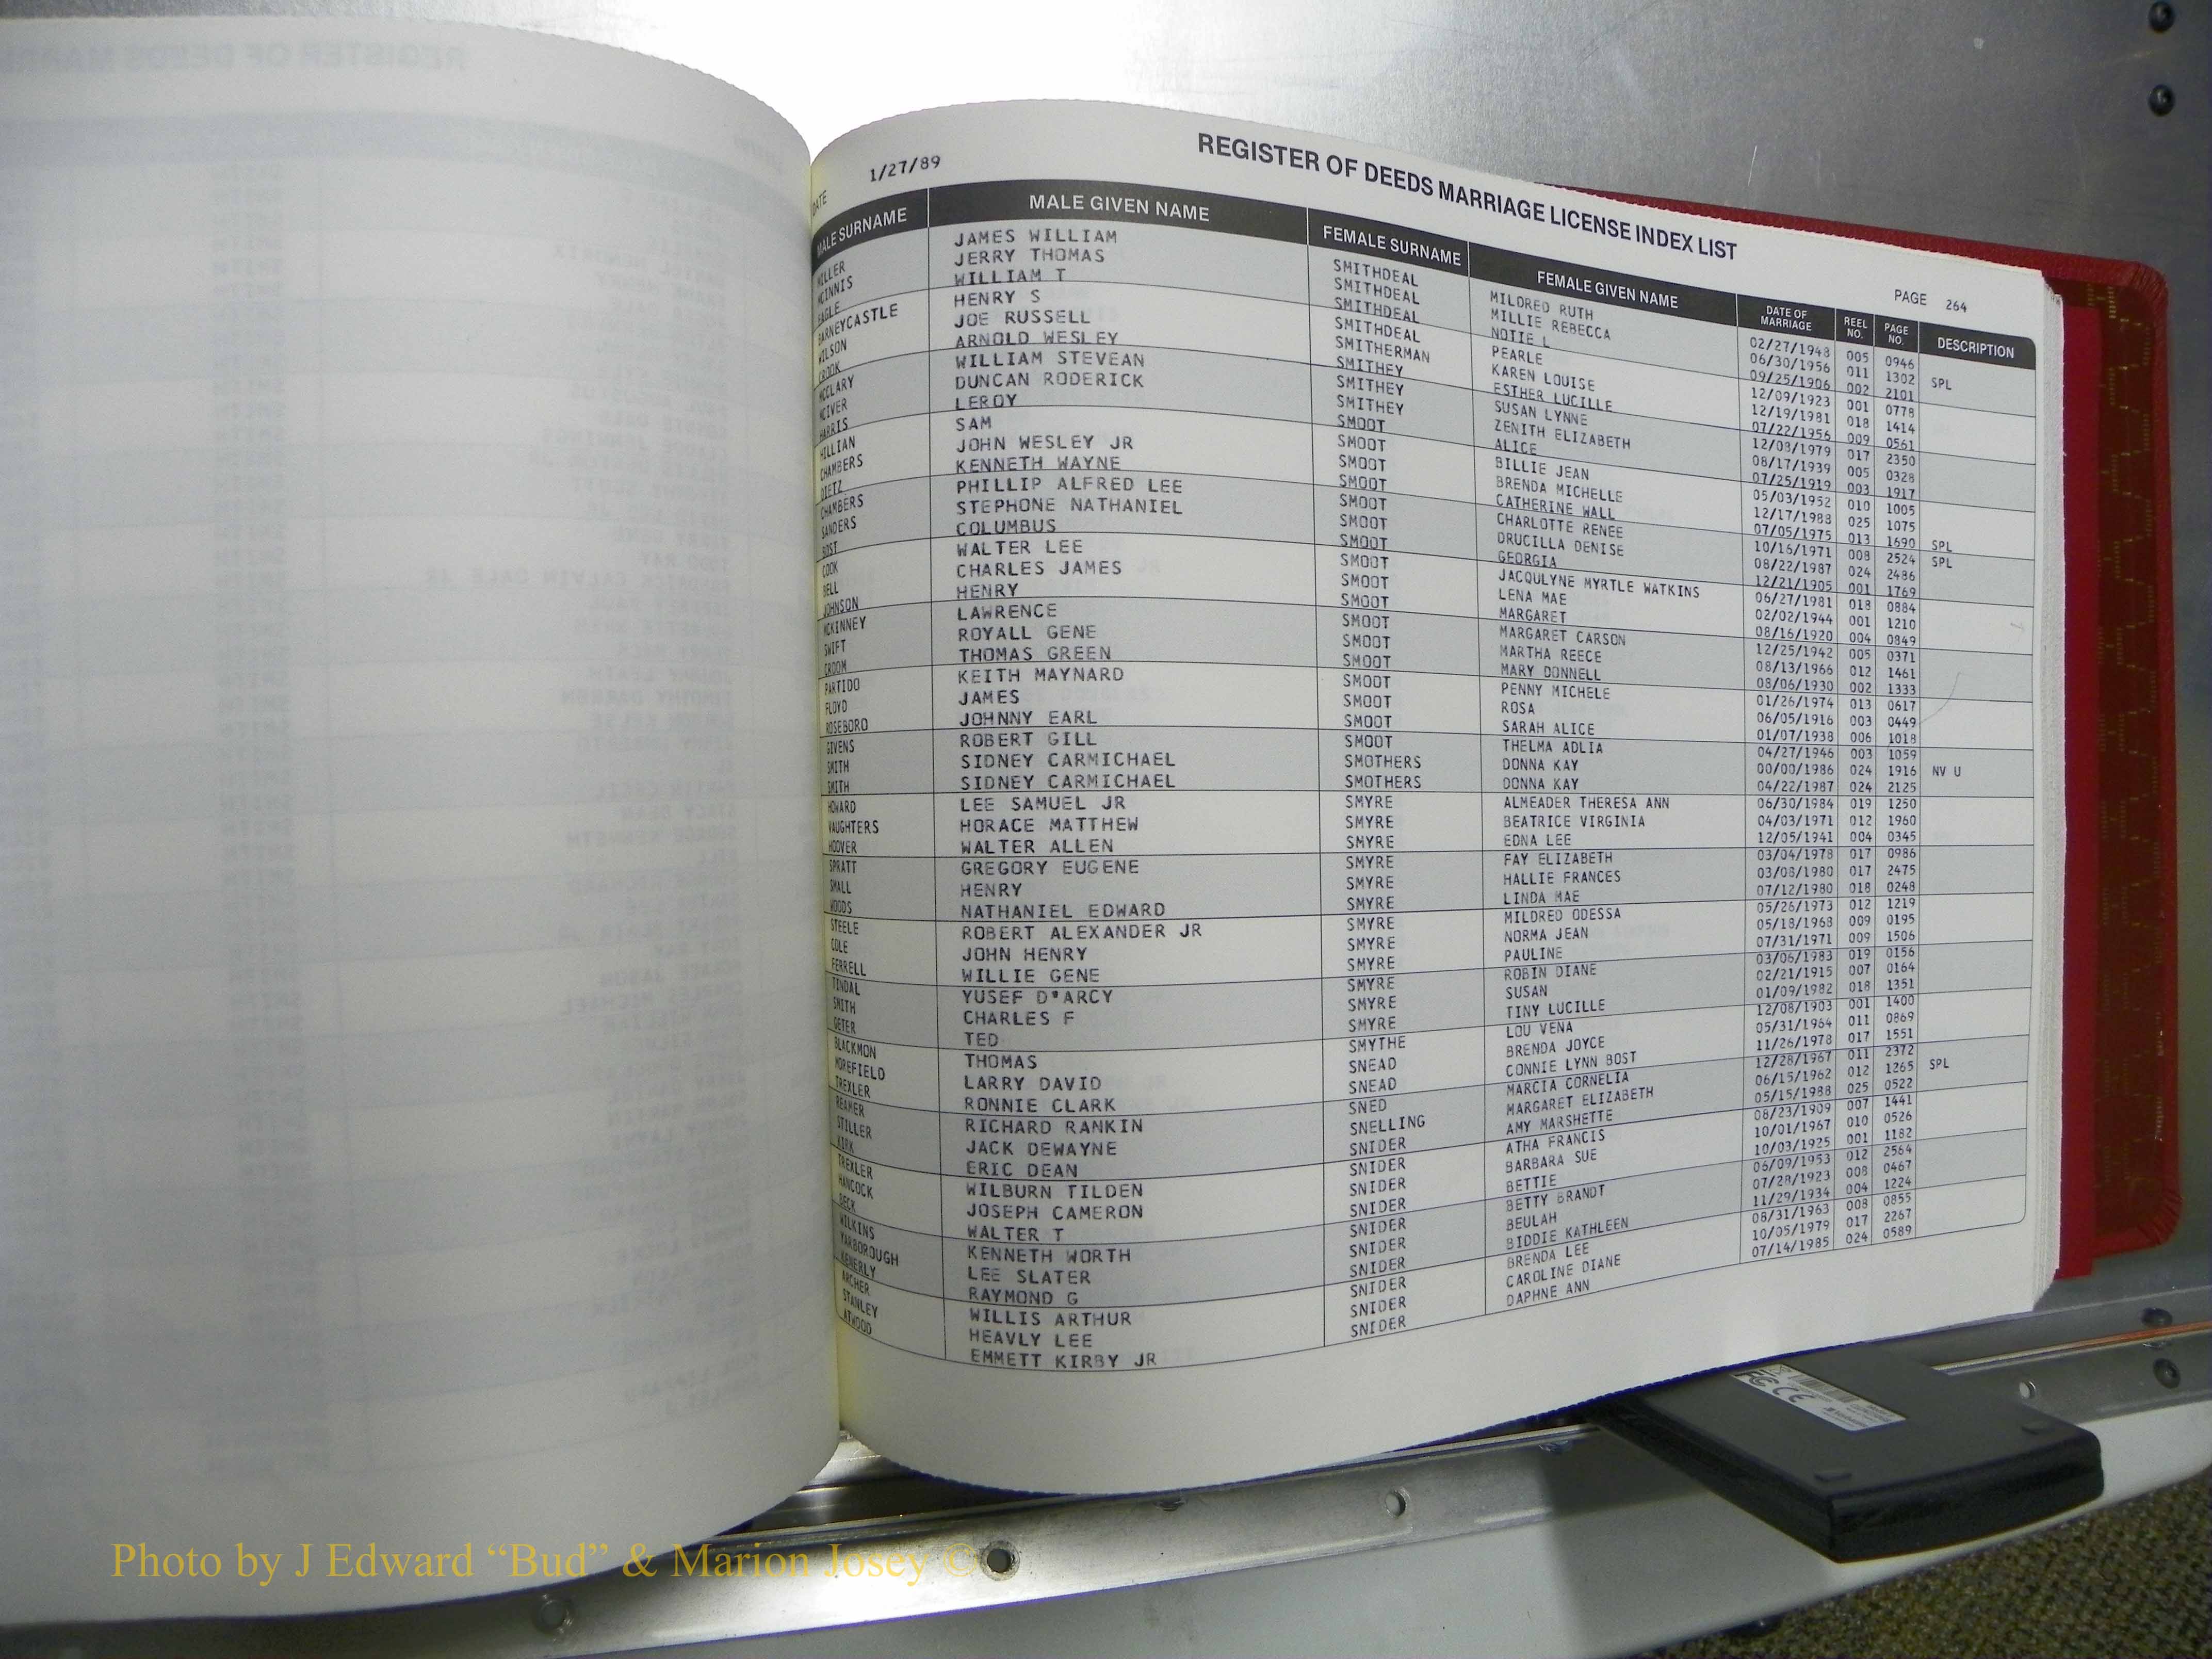 DATE 1/27/89
REGISTER OF DEEDS MARRIAGE LICENSE INDEX LIST
PAGE 264
MALE SURNAME MALE GIVEN NAME FEMALE SURNAME FEMALE GIVEN NAME DATE OF MARRIAGE REEL NO. PAGE NO. DESCRIPTION
MILLER JAMES WILLIAM SMITHDEAL MILDRED RUTH 02/27/1948 005 0946
MCINNIS JERRY THOMAS SMITHDEAL MILLIE REBECCA 06/30/1956 011 1302 SPL
EAGLE WILLIAM T SMITHDEAL NOTIE L 09/25/1906 002 2101
BARNEYCASTLE HENRY S SMITHDEAL PEARLE 12/09/1923 001 0778
WILSON JOE RUSSELL SMITHERMAN KAREN LOUISE 12/19/1981 018 1414
CROOK ARNOLD WESLEY SMITHEY ESTHER LUCILLE 07/22/1956 009 0561
MCCLARY WILLIAM STEVEAN SMITHEY SUSAN LYNNE 12/08/1979 017 2350
MCIVER DUNCAN RODERICK SMITHEY ZENITH ELIZABETH 08/17/1939 005 0328
HARRIS LEROY SMOOT ALICE 07/25/1919 003 1917
HILLIAN SAM SMOOT BILLIE JEAN 05/03/1952 010 1005
CHAMBERS JOHN WESLEY JR SMOOT BRENDA MICHELLE 12/17/1988 025 1075
DIETZ KENNETH WAYNE SMOOT CATHERINE WALL 07/05/1975 013 1690 SPL
CHAMBERS PHILLIP ALFRED LEE SMOOT CHARLOTTE RENEE 10/16/1971 008 2524 SPL
SANDERS STEPHONE NATHANIEL SMOOT DRUCILLA DENISE 08/22/1987 024 2486
BOST COLUMBUS SMOOT GEORGIA 12/21/1905 001 1769
COOK WALTER LEE SMOOT JACQULYNE MYRTLE WATKINS 06/27/1981 018 0884
BELL CHARLES JAMES SMOOT LENA MAE 02/02/1944 001 1210
JOHNSON HENRY SMOOT MARGARET 08/16/1920 004 0849
MCKINNEY LAWRENCE SMOOT MARGARET CARSON 12/25/1942 005 0371
SWIFT ROYALL GENE SMOOT MARTHA REECE 08/13/1966 012 1461
CROOM THOMAS GREEN SMOOT MARY DONNELL 08/06/1930 002 1333
PARTIDO KEITH MAYNARD SMOOT PENNY MICHELE 01/26/1974 013 0617
FLOYD JAMES SMOOT ROSA 06/05/1916 003 0449
ROSEBORO JOHNNY EARL SMOOT SARAH ALICE 01/07/1938 006 1018
GIVENS ROBERT GILL SMOOT THELMA ADLIA 04/27/1946 003 1059
SMITH SIDNEY CARMICHAEL SMOTHERS DONNA KAY 00/00/1986 024 1916 NV U
SMITH SIDNEY CARMICHAEL SMOTHERS DONNA KAY 04/22/1987 024 2125
HOWARD LEE SAMUEL JR SMYRE ALMEADER THERESA ANN 06/30/1984 019 1250
VAUGHTERS HORACE MATTHEW SMYRE BEATRICE VIRGINIA 04/03/1971 012 1960
HOOVER WALTER ALLEN SMYRE EDNA LEE 12/05/1941 004 0345
SPRATT GREGORY EUGENE SMYRE FAY ELIZABETH 03/04/1978 017 0986
SMALL HENRY SMYRE HALLIE FRANCES 03/08/1980 017 2475
WOODS NATHANIEL EDWARD SMYRE LINDA MAE 07/12/1980 018 0248
STEELE ROBERT ALEXANDER JR SMYRE MILDRED ODESSA 05/26/1973 012 1219
COLE JOHN HENRY SMYRE NORMA JEAN 05/18/1968 009 0195
FERRELL WILLIE GENE SMYRE PAULINE 07/31/1971 009 1506
TINDAL YUSEF D"ARCY SMYRE ROBIN DIANE 03/06/1983 019 0156
SMITH CHARLES F SMYRE SUSAN 02/21/1915 007 0164
GETER TED SMYRE TINY LUCILLE 01/09/1982 018 1351
BLACKMON THOMAS SMYTHE LOU VENA 12/08/1903 001 1400
MOREFIELD LARRY DAVID SNEAD BRENDA JOYCE 05/31/1964 011 0869
TREXLER RONNIE CLARK SNEAD CONNIE LYNN BOST 11/26/1978 017 1551
REAMER RICHARD RANKIN SNED MARCIA CORNELIA 12/28/1967 011 2372
STILLER JACK DEWAYNE SNELLING MARGARET ELIZABETH 06/15/1962 012 1265 SPL
KIRK ERIC DEAN SNIDER AMY MARSHETTE 05/15/1988 025 0522
TREXLER WILBURN TILDEN SNIDER ATHA FRANCIS 08/23/1909 007 1441
HANCOCK JOSEPH CAMERON SNIDER BARBARA SUE 10/01/1967 010 0526
BECK WALTER T SNIDER BETTIE 10/03/1925 001 1182
WILKINS KENNETH WORTH SNIDER BETTY BRANDT 06/09/1953 012 2564
YARBOROUGH LEE SLATER SNIDER BEULAH 07/28/1923 008 0467
KENERLY RAYMOND G SNIDER BIDDIE KATHLEEN 11/29/1934 004 1224
ARCHER WILLIS ARTHUR SNIDER BRENDA LEE 08/31/1963 008 0855
STANLEY HEAVLY LEE SNIDER CAROLINE DIANE 10/05/1979 017 2267
ATWOOD EMMETT KIRBY JR SNIDER DAPHNE ANN 07/14/1985 024 0589
FC CE
Photo by J Edward “Bud” & Marion Josey ©